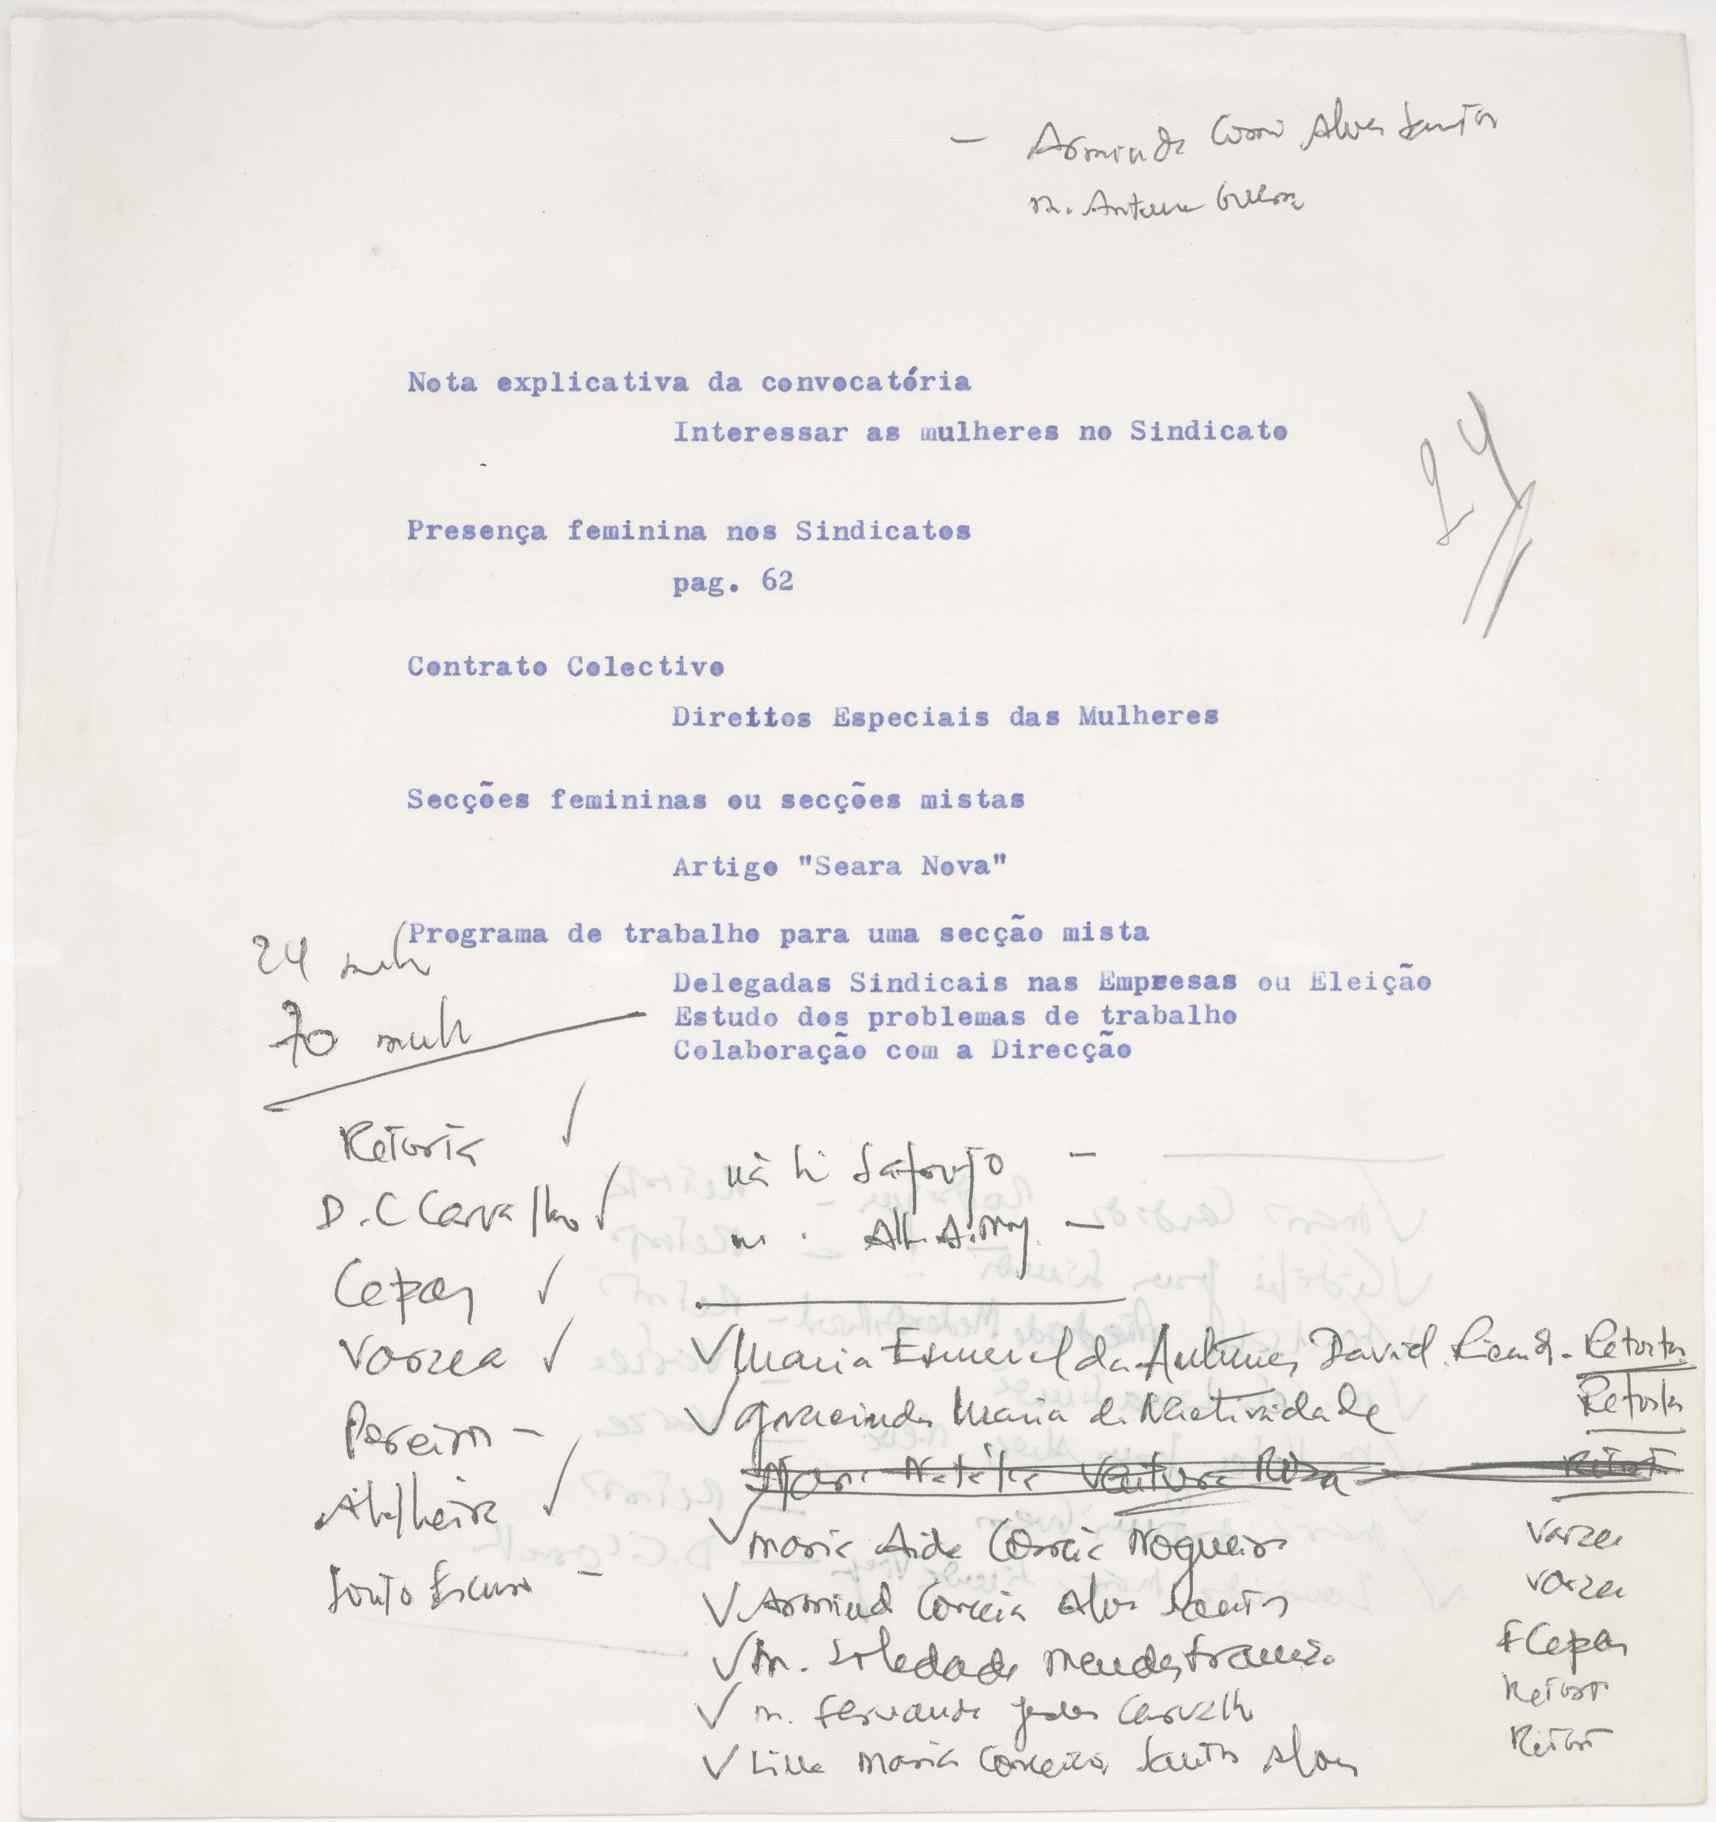 - Arminda Alves Santos
m. Antune
Nota explicativa da convocatória
Interessar as mulheres no Sindicato
24
Presença feminina nos Sindicatos
pag. 62
Contrato Colectivo
Direitos Especiais das Mulheres
Secções femininas ou secções mistas
Artigo "Seara Nova"
24 mulh
Programa de trabalho para uma secção mista
Delegadas Sindicais nas Empresas ou Eleição
70 mulh
Estudo dos problemas de trabalho
Colaboração com a Direcção
Retorta
D. C Carvalho
Cepas
Varzea
Pereira -
Abelheira
Souto Escuro -
✓ Maria Esmeralda Antunes David Retorta
✓ Gracinda Maria da Nactividade Retorta
Maria Natália Ventura Rosa
✓ Maria Aida Correia Nogueira Varzea
✓ Arminda Correia Alves Santos Varzea
✓ M. Soledade Mendes F Cepas
✓ m. Fernanda Carvalh Retort
✓ Maria Santos Alves Retort